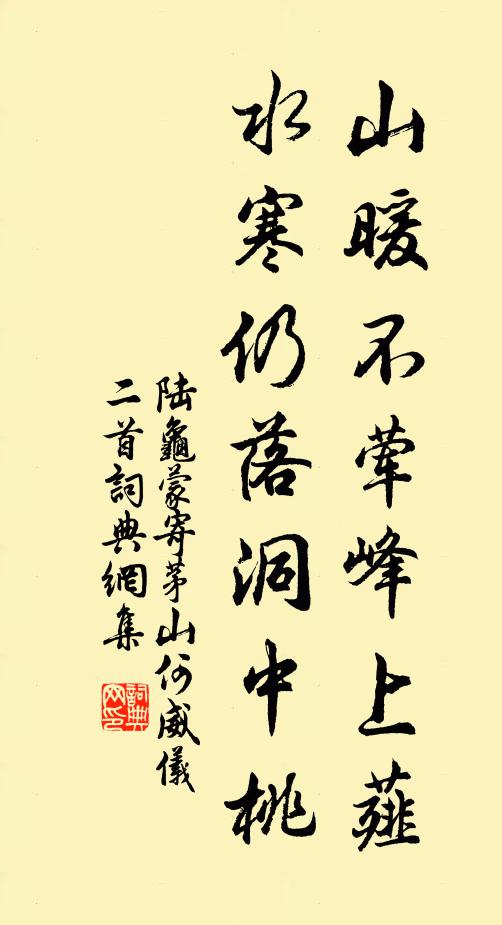 山暖不荤峰上薤
水寒仍落洞中桃
陆龜蒙寄茅山何威儀
二首詞典網集
詞典網印